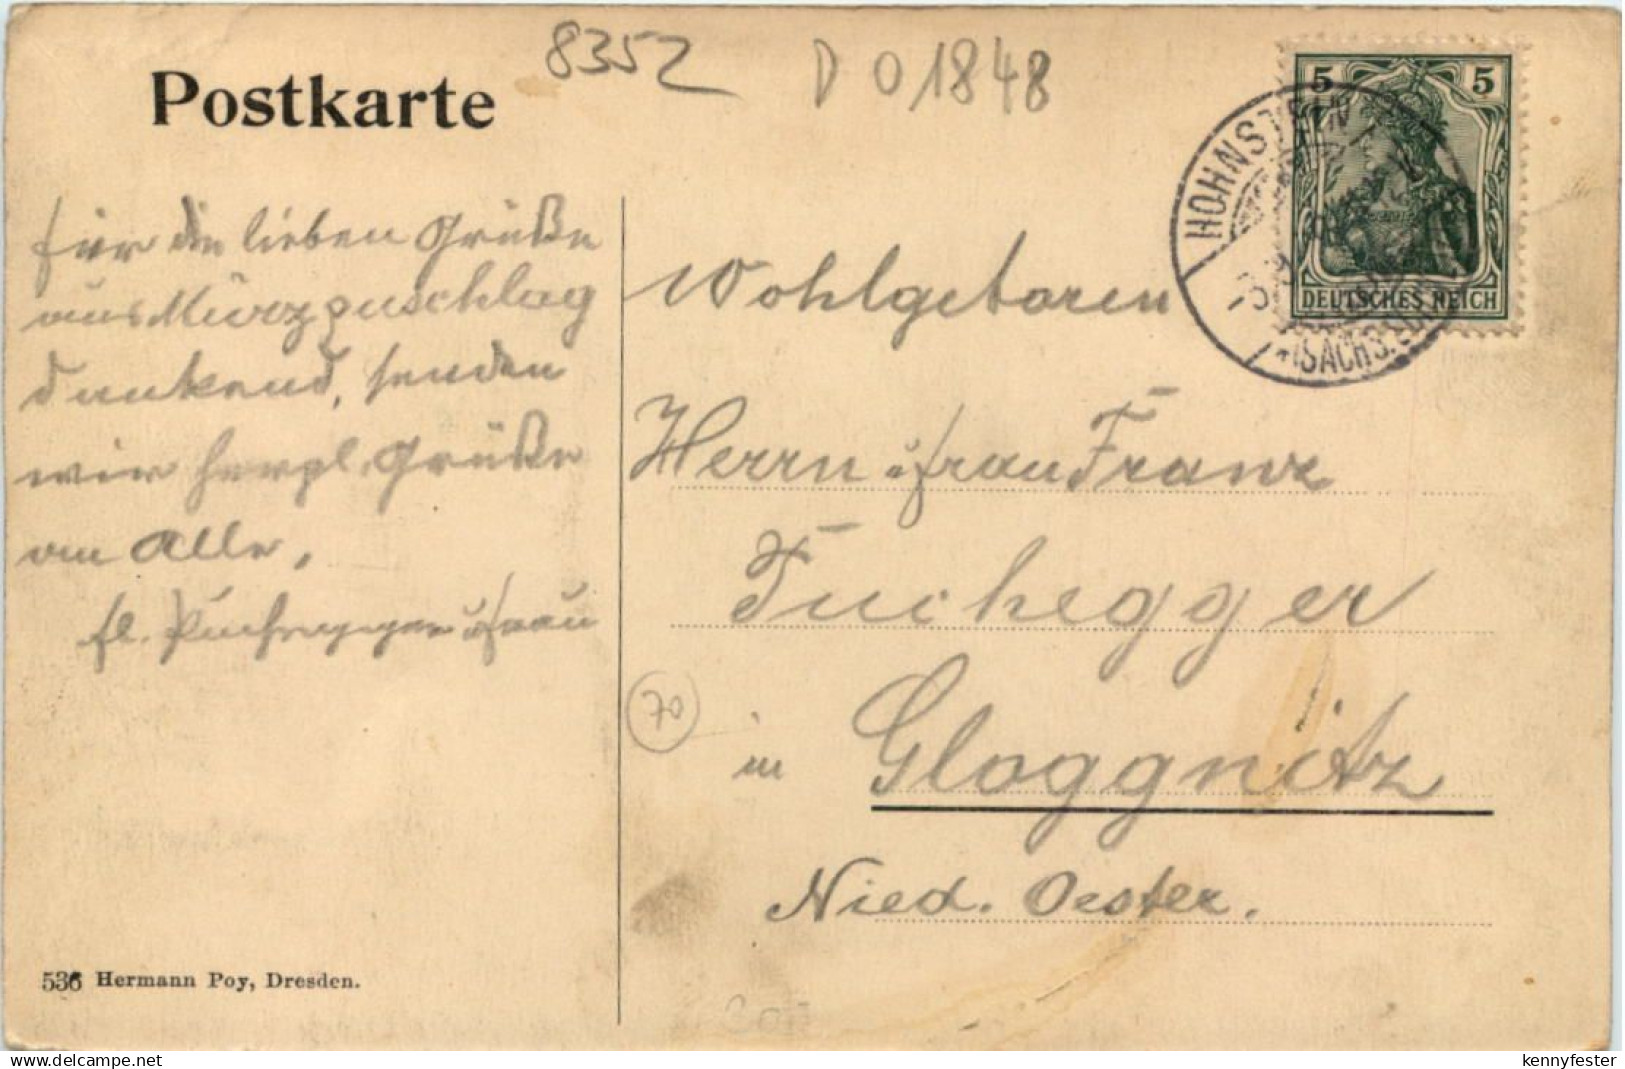 8352
D 01848
Postkarte
5 5
HOHNSTEIN
DEUTSCHES REICH
(SÄCHS.
für die lieben Grüße
aus Mürzzuschlag
dankend, senden
wir herzl. Grüße
an Alle,
Frau
Wohlgeboren
Herrn u Frau Franz
Tuchegger
70
in Gloggnitz
Nied. Oester.
536 Hermann Poy, Dresden.
kennyfester